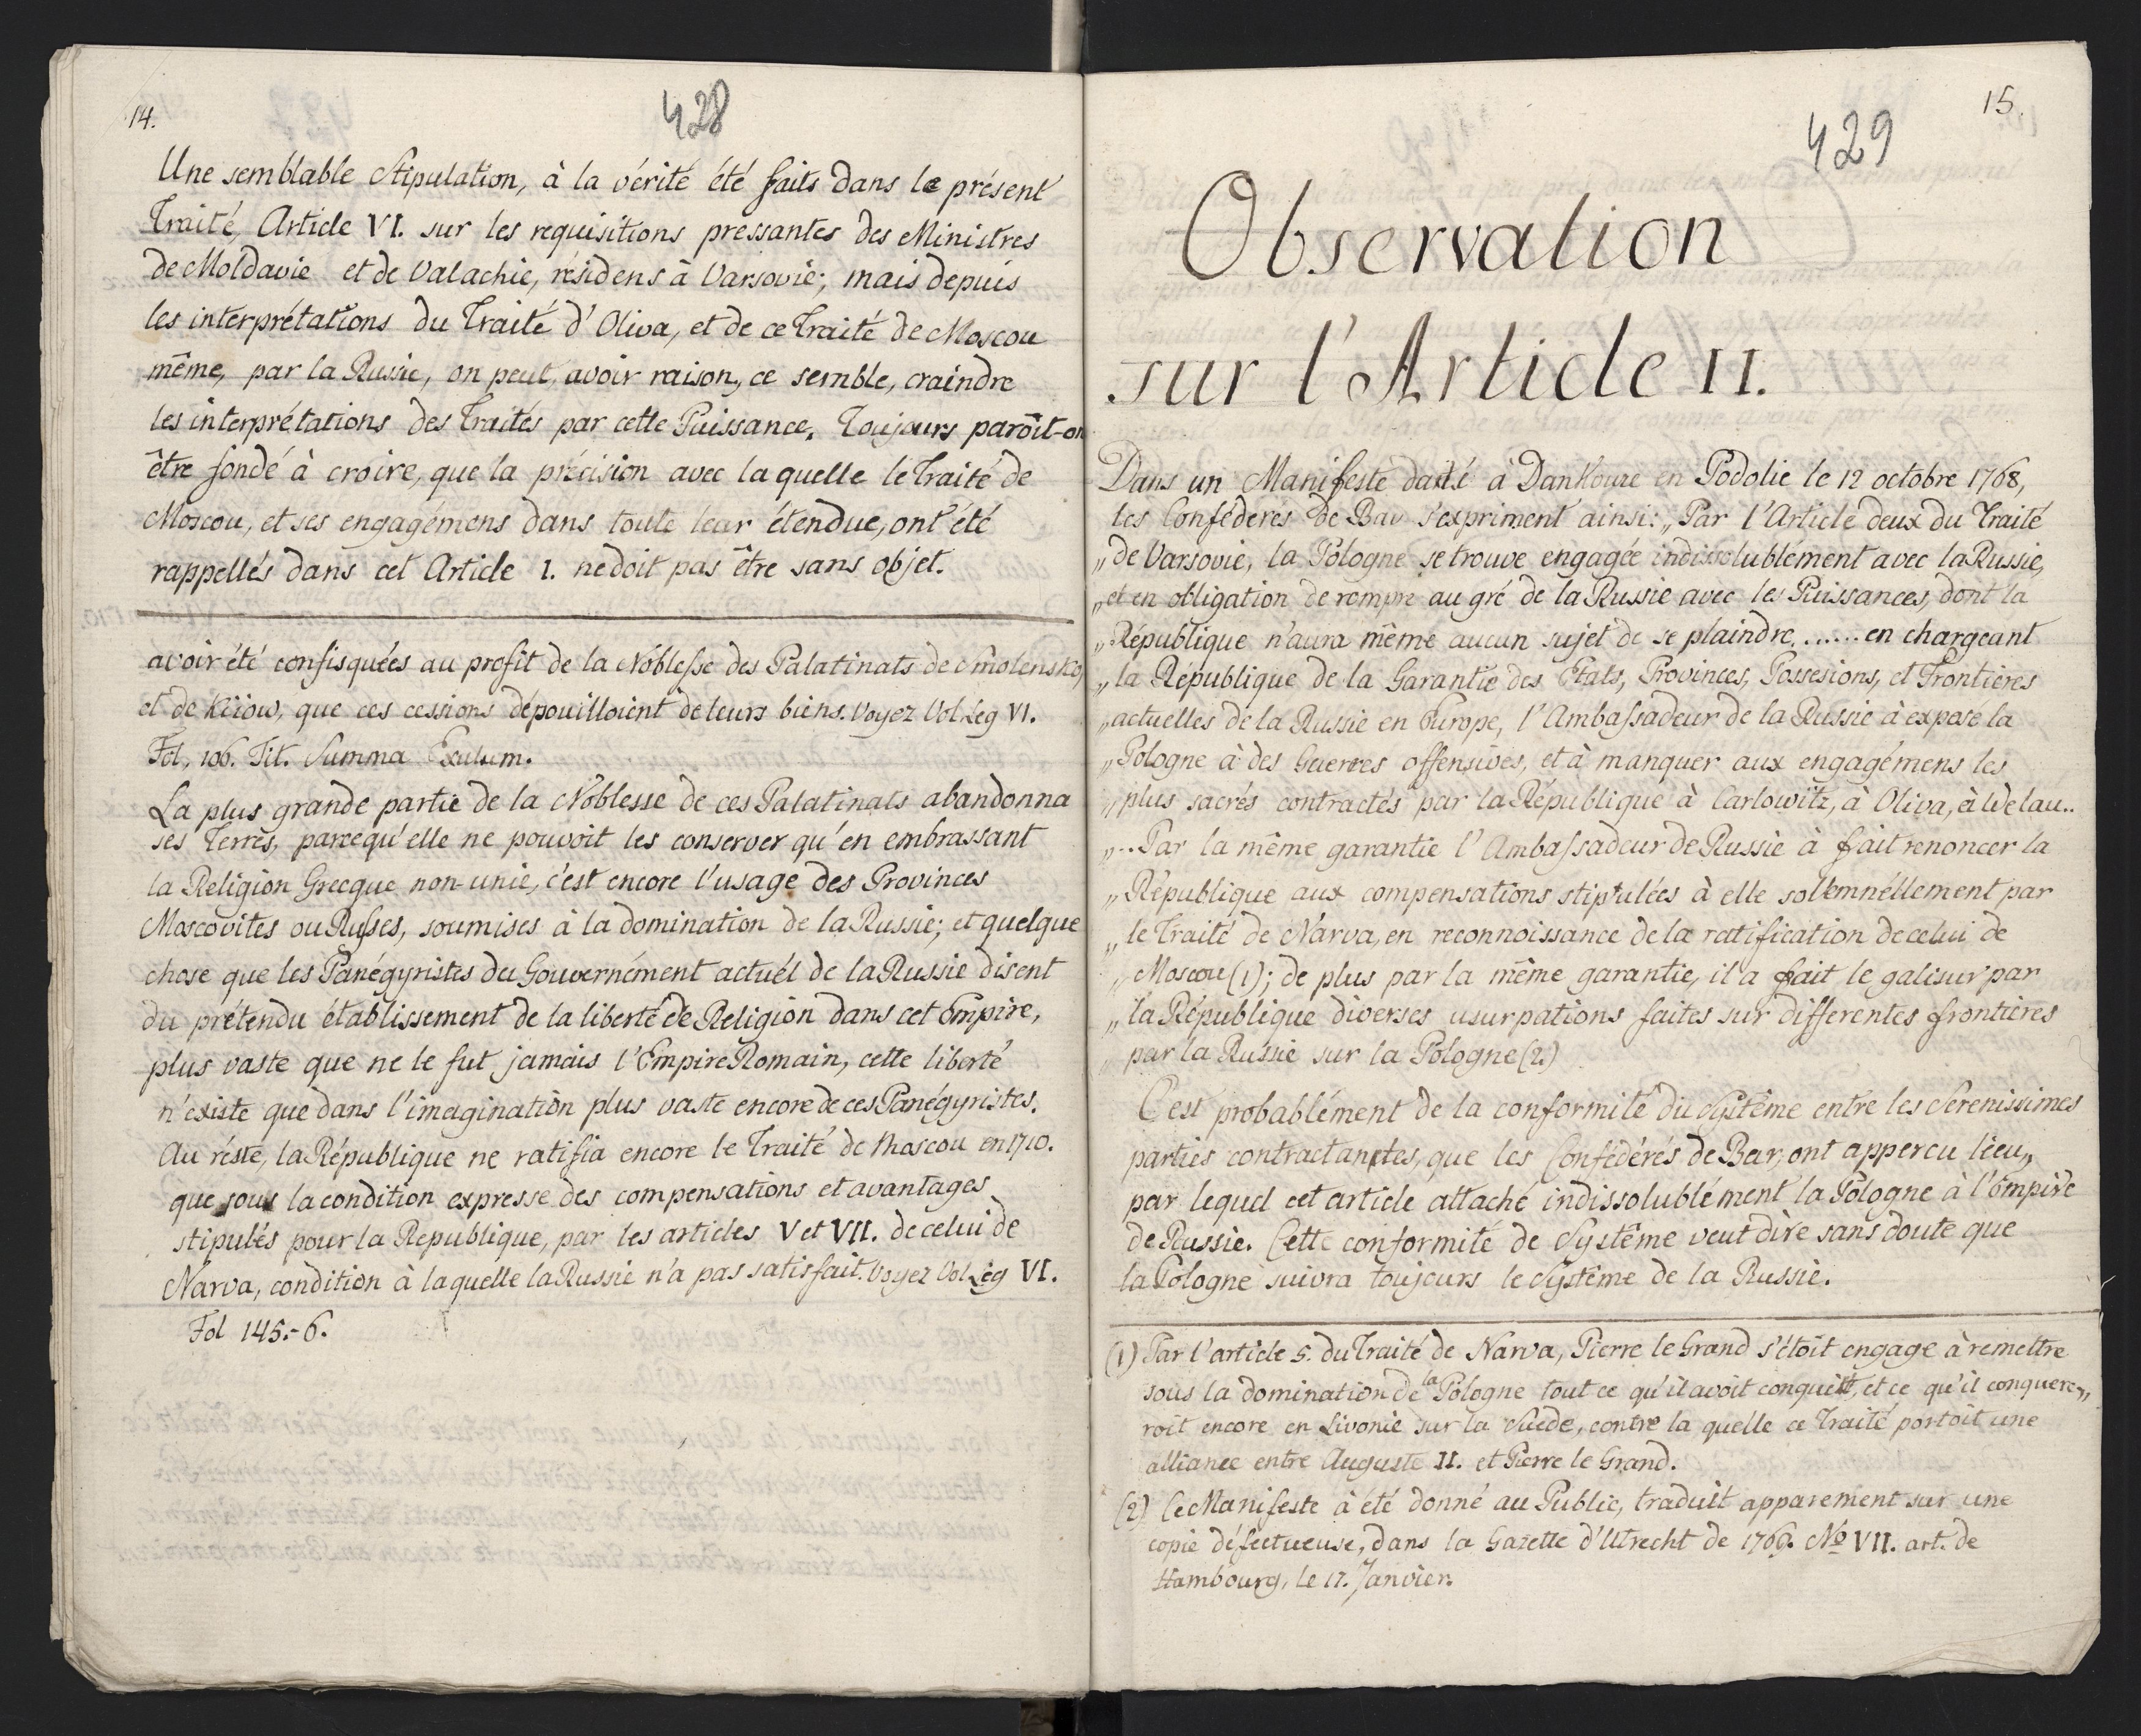 14.
428
Une semblable Stipulation, à la vérité été faits dans le présent
Traité, Article VI. sur les requisitions pressantes des Ministres
de Moldavie et de Valachie, résidens à Varsovie; mais depuis
les interprétations du Traité d'Oliva, et de ce Traité de Moscou
même, par la Russie, on peut, avoir raison, ce semble, craindre
les interprétations des Traités par cette Puissance. Toujours paroît-on
être fondé à croire, que la précision avec laquelle le Traité de
Moscou, et ses engagémens dans toute leur étendue, ont été
rappellés dans cet Article 1. ne doit pas être sans objet.
avoir été confisquées au profit de la Noblesse des Palatinats de Smolensko,
et de Kiiow, que ces cessions dépouilloient de leurs biens. Voyez Vol Leg VI.
Fol, 106. Tit. Summa Exulum.
La plus grande partie de la Noblesse de ces Palatinats abandonna
ses Terres, parcequ'elle ne pouvoit les conserver qu'en embrassant
la Religion Grecque non-unie, c'est encore l'usage des Provinces
Moscovites ou Russes, soumises à la domination de la Russie; et quelque
chose que les Panégyristes du Gouvernément actuél de la Russie disent
du prétendu établissement de la liberté de Religion dans cet Empire,
plus vaste que ne le fut jamais l'Empire Romain, cette liberté
n'existe que dans l'imagination plus vaste encore de ces Panégyristes.
Au réste, la République ne ratifia encore le Traité de Moscou en 1710.
que sous la condition expresse des compensations et avantages
stipulés pour la Republique, par les articles V et VII. de celui de
Narva, condition à laquelle la Russie n'a pas satisfait. Voyez Vol Leg VI.
Fol 145.-6.
15.
429
Observation
sur l'Article II.
Dans un Manifeste daté à Dankoure en Podolie le 12 octobre 1768,
les Conféderés de Bar s'expriment ainsi: „Par l'Article deux du Traité
„de Varsovie, la Pologne se trouve engagée indissolublément avec la Russie,
„et en obligation de rompre au gré de la Russie avec les Puissances, dont la
„République n'aura même aucun sujet de se plaindre......en chargeant
„la République de la Garantie des Etats, Provinces, Possesions, et Frontières
„actuelles de la Russie en Europe, l'Ambassadeur de la Russie à exposé la
„Pologne à des Guerres offensives, et à manquer aux engagémens les
„plus sacrés contractés par la République à Carlowitz, à Oliva, à Welau..
„..Par la même garantie l'Ambassadeur de Russie à fait renoncer la
„République aux compensations stipulées à elle solemnéllement par
„le Traité de Narva, en reconnoissance de la ratification de celui de
„Moscou (1); de plus par la même garantie, il a fait le galisur par
„la République diverses usurpations faites sur differentes frontières
„par la Russie sur la Pologne (2.)
C'est probablément de la conformité du Systême entre les Serenissimes
parties contractantes, que les Confédérés de Bar, ont appercu lieu„
par lequel cet article attaché indissolublément la Pologne à l'Empire
de Russie. Cette conformité de Systême veut dire sans doute que
la Pologne suivra toujours le Systême de la Russie.
(1) Par l'article 5. du Traité de Narva, Pierre le Grand s'étoit engagé à remettre
sous la domination de la Pologne tout ce qu'il avoit conquis, et ce qu'il conquere„
roit encore en Livonie sur la Suede, contre la quelle ce Traité portoit une
alliance entre Auguste II. et Pierre le Grand.
(2) Ce Manifeste à été donné au Public, traduit apparement sur une
copie déféctueuse, dans la Gazette d'Utrecht de 1769. No VII. art. de
Hambourg, le 17. Janvier.